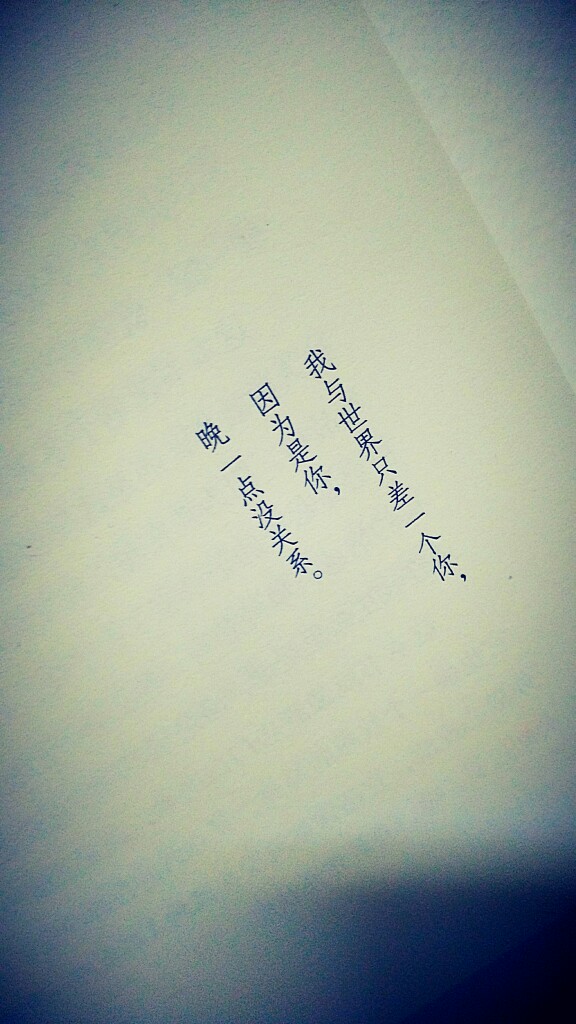 我与世界只差一个你，
因为是你，
晚一点没关系。